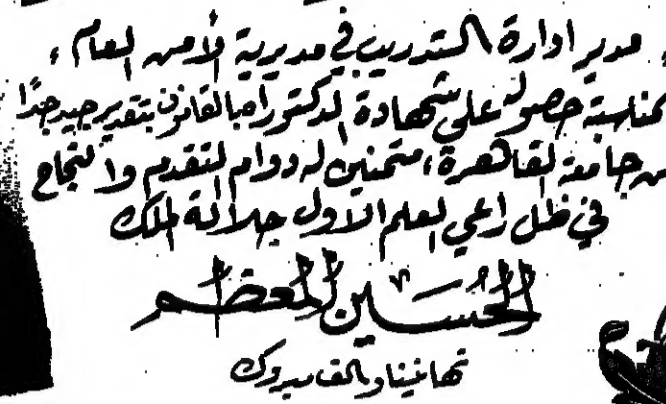 مدير ادارة التدريب في مديرية الأمن العام ،
بمناسبة حصوله على شهادة الدكتوراه بالقانون بتقدير جيد جدًا
من جامعة القاهرة ، متمنين له دوام التقدم والنجاح
في ظل راعي العلم الأول جلالة الملك
الحُسَين المعظم
تهانينا والف مبروك